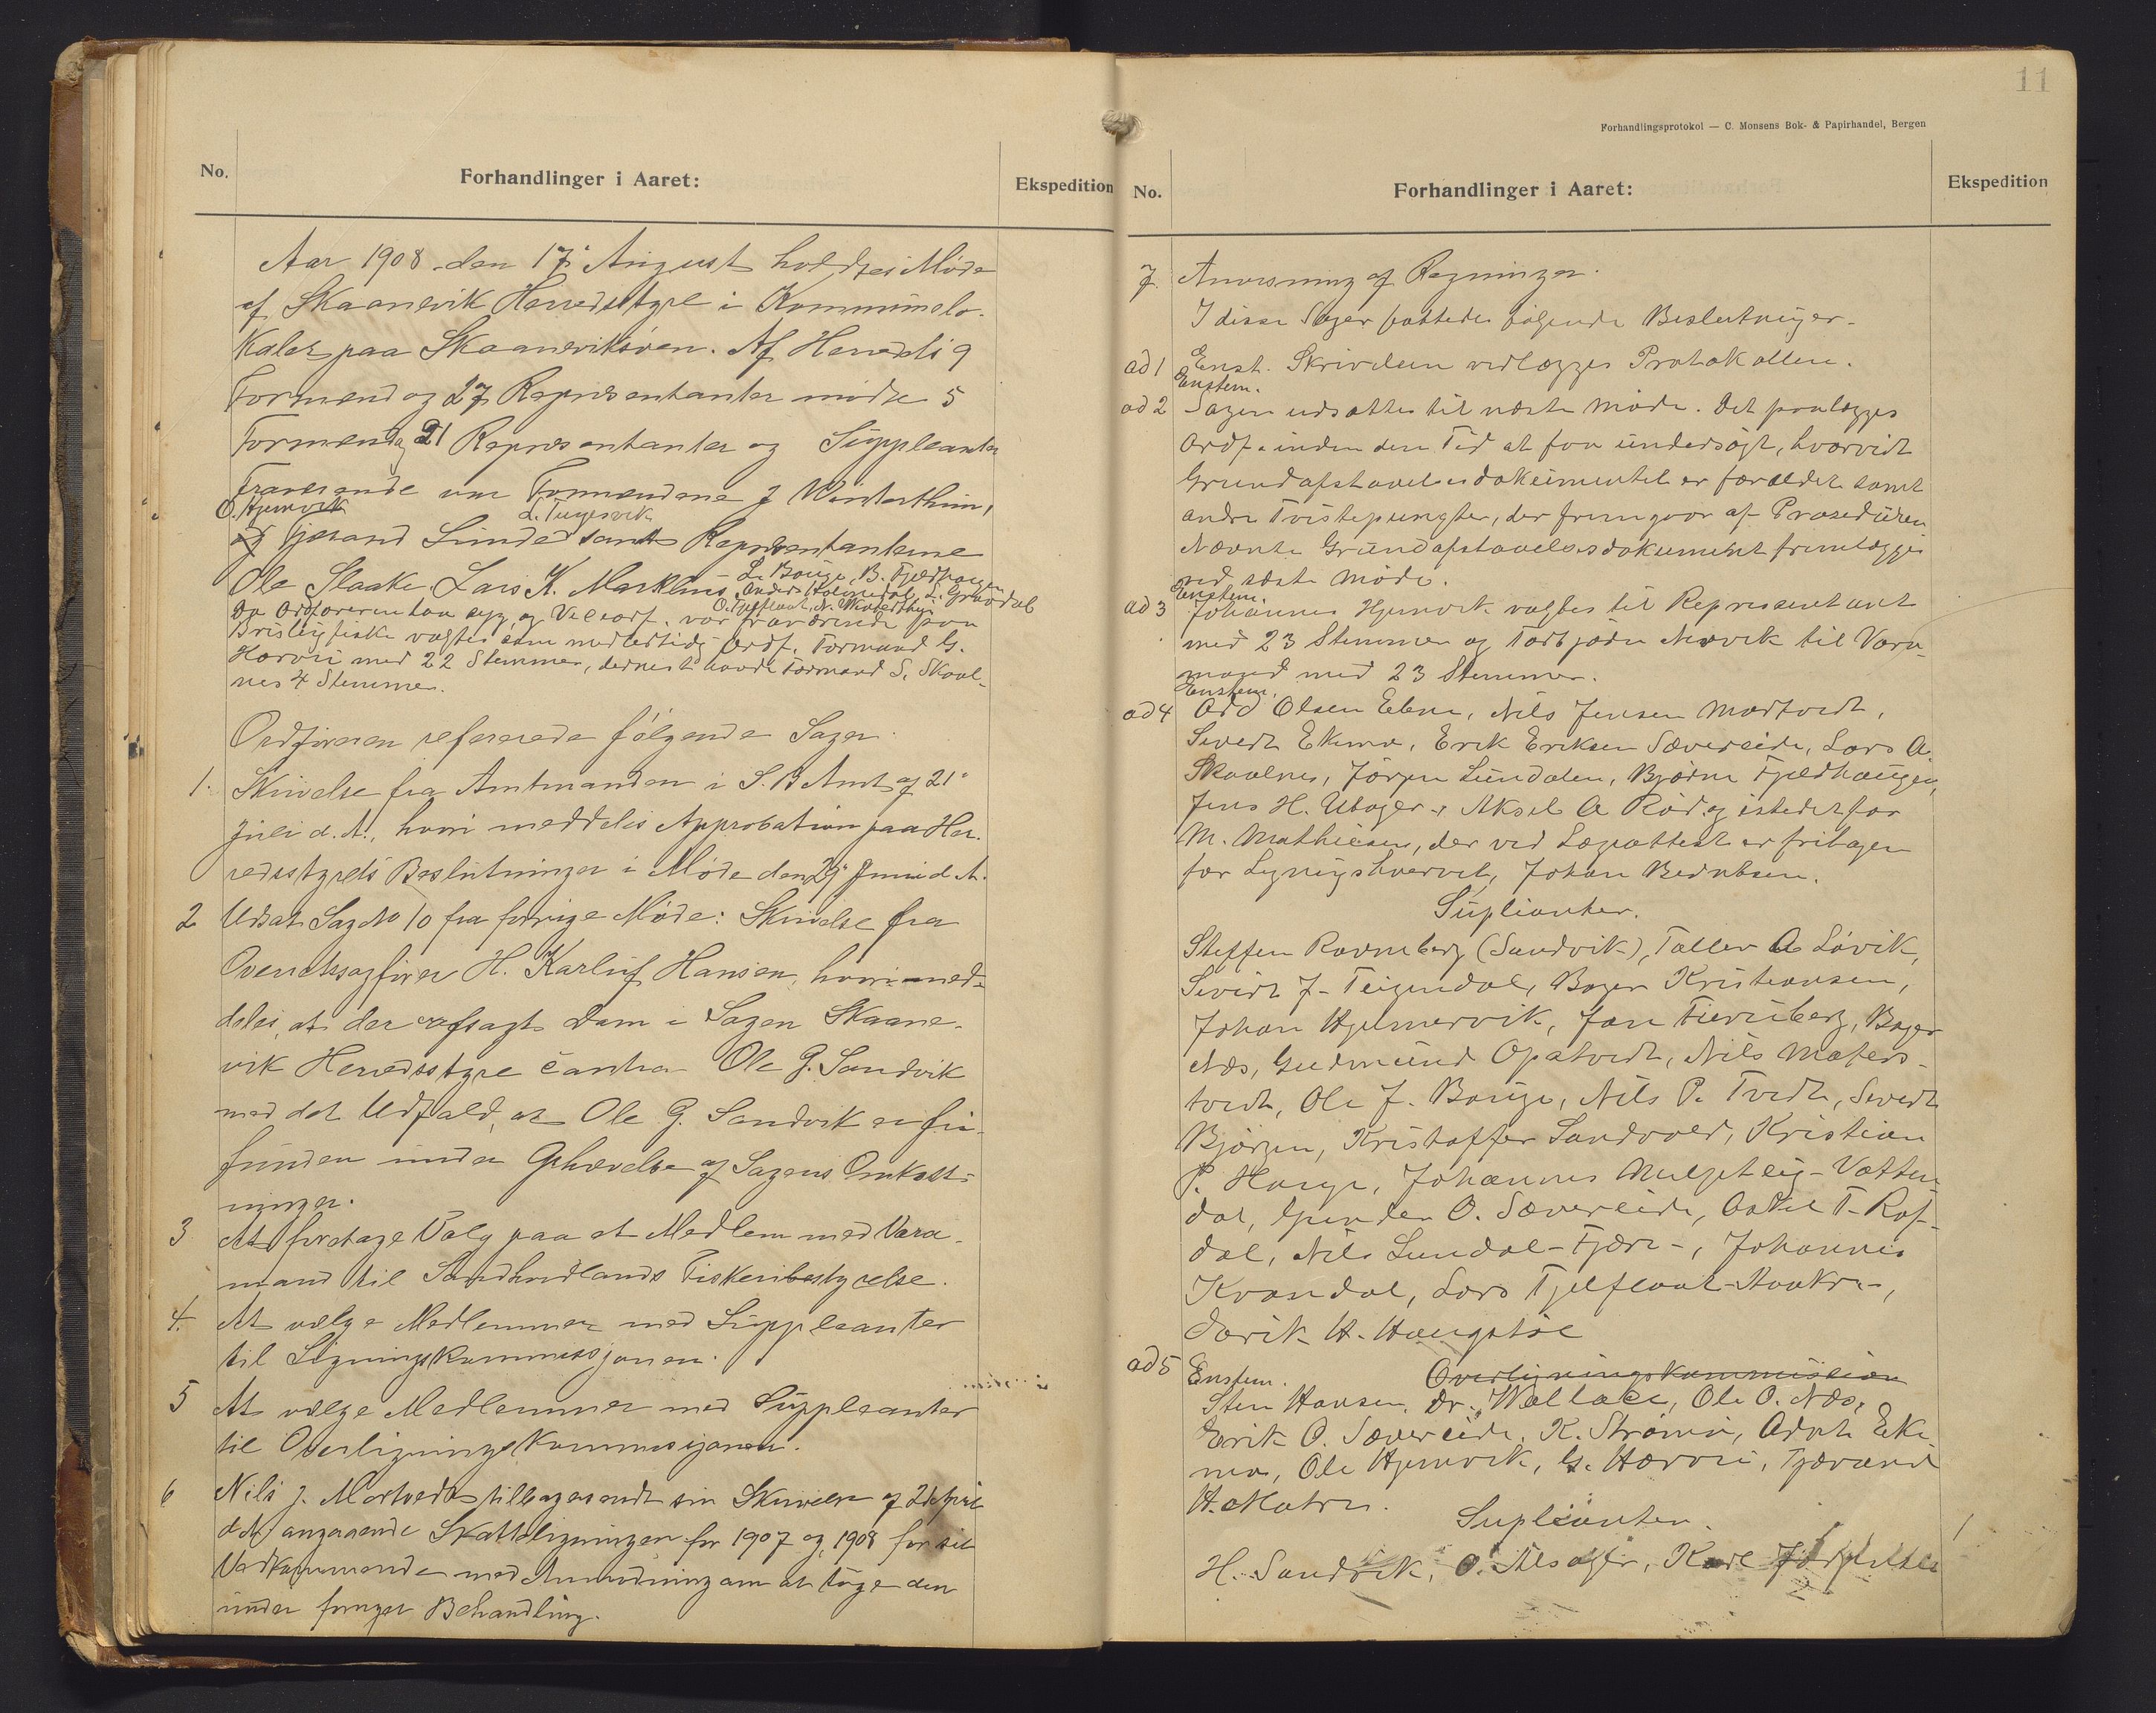 No.
Forhandlinger i Aaret:
Ekspedition
Aar 1908 den 17de August holdtes Møde
af Skaanevik Herredsstyre i Kommunelo-
kalet paa Skaanevikøren. Af Herredets 9
Formænd og 27 Repræsentanter mødte 5
Formænd og 21 Repræsentanter og Suppleanter
Fraværende var Formændene J Vinterthun,
O. Hjemvik L. Tungesvik
og Gjerand Lunde samt Repræsentanterne
Ole Slaake, Lars K. Marklms L. Bauge, B. Fjeldhaugen
Anders Holmedal, L. Grindal
O. Fjelflaat, N. Vinterthun
Da Ordføreren var syg og Viceordf. var fraværende paa
Brislingfiske valgtes som midlertidig Ordf. Formand G.
Hærvii med 22 Stemmer, dernest havde Formand S. Skaal-
nes 4 Stemmer.
Ordføreren refererede følgende Sager.
1. Skrivelse fra Amtmanden i S. B Amt af 21de
Juli d. A., hvori meddeles Approbation paa Her-
redsstyrets Beslutninger i Møde den 29de Juni d. A.
2 Udsat Sag No 10 fra forrige Møde: Skrivelse fra
Overretssagfører H. Karluf Hansen, hvori med-
deles, at der er afsagt Dom i Sagen Skaane-
vik Herredsstyre contra Ole G. Sandvik
med det Udfald, at Ole G. Sandvik er fri-
funden under Ophævelse af Sagens Omkost-
ninger.
3 At foretage Valg paa et Medlem med Vara-
mand til Søndhordlands Fiskeribestyrelse.
4. At vælge Medlemmer med Suppleanter
til Ligningskommissjonen.
5 At vælge Medlemmer med Suppleanter
til Overligningskommissjonen.
6 Nils J. Mortvedt tilbagesendt sin Skrivelse af 2den April
d. A. angaaende Skatteligningen for 1907 og 1908 for sit
Vedkommende med Anmodning om at tage den
under fornyet Behandling.
11
Forhandlingsprotokol — C. Monsens Bok- & Papirhandel, Bergen
No.
Forhandlinger i Aaret:
Ekspedition
7. Anvisning af Regninger.
I disse Sager fattedes følgende Beslutninger.
ad 1 Enst. Skrivelsen vedlægges Protokollen.
Enstem.
ad 2 Sagen udsættes til næste Møde. Det paalægges
Ordf. inden den Tid at faa undersøgt, hvorvidt
Grundafstaaelsesdokumentet er forældet samt
andre Tvistepungter, der fremgaar af Proseduren
Nævnte Grundafstaaelsesdokument fremlægges
ved næste Møde.
Enstem.
ad 3 Johannes Hjemvik valgtes til Representant
med 23 Stemmer og Torbjørn Nævik til Vara-
mand med 23 Stemmer.
Enstem.
ad 4 Odd Olsen Ebne, Nils Jensen Mortvedt,
Sivert Ekimo, Erik Eriksen Sævereide, Lars A.
Skaalnes, Jørgen Lundalen, Bjørne Fjeldhaugen,
Jens H. Utaager, Aksel A Rød og istedetfor
M. Mathiesen, der ved Lægeattest er fritagen
for Ligningshvervet, Johan Berntsen.
Suplianter.
Steffen Ravneberg (Sandvik), Tollev A Løvik,
Sivert J. Teigendal, Børge Kristiansen,
Johan Hjelmervik, Jan Fierriberg, Børge
Næs, Gudmund Opatvedt, Nils Maters-
tvedt, Ole J. Bauge, Nils P. Tvedt, Sivert
Bjørgen, Kristoffer Sandvold, Kristian
P. Hauge, Johannes Milpetlig-Vatten-
dal, Gunder O. Sævereide, Osvel T. Rof-
dal, Nils Lundal-Fjære-, Johannes
Kvandal, Lars Fjelflaat-Aakre-,
Jarik H. Haugstøl
ad 5 Enstem. Overligningskommission
Sten Hansen, Dr. Wallace, Ole O. Næs,
Erik O. Sævereide, K. Strømø, Adne Eki-
mo, Ole Hjemvik, G. Hærvii, Tjerand
H. Matre.
Suplianter.
H. Sandvik, O. Alsager, Karl